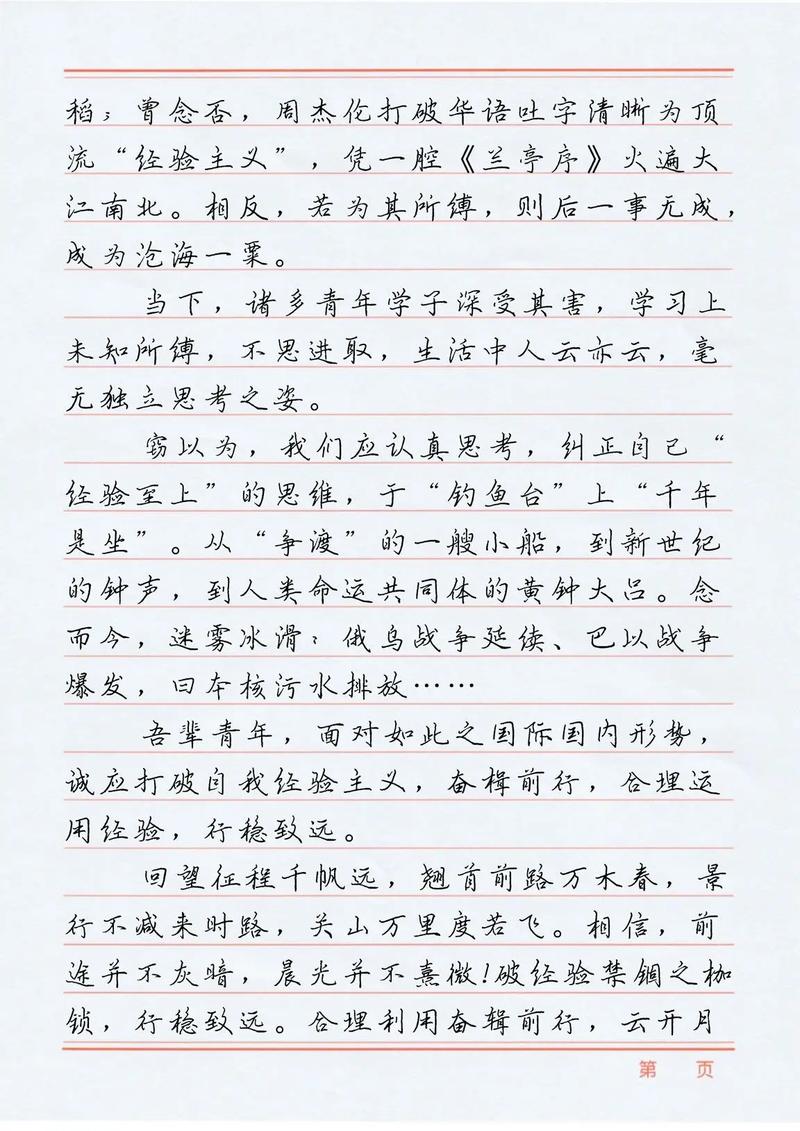 稻；曾念否，周杰伦打破华语吐字清晰为顶
流“经验主义”，凭一腔《兰亭序》火遍大
江南北。相反，若为其所缚，则后一事无成，
成为沧海一粟。
当下，诸多青年学子深受其害，学习上
未知所缚，不思进取，生活中人云亦云，毫
无独立思考之姿。
窃以为，我们应认真思考，纠正自己“
经验至上”的思维，于“钓鱼台”上“千年
是坐”。从“争渡”的一艘小船，到新世纪
的钟声，到人类命运共同体的黄钟大吕。念
而今，迷雾冰滑：俄乌战争延续、巴以战争
爆发，日本核污水排放……
吾辈青年，面对如此之国际国内形势，
诚应打破自我经验主义，奋楫前行，合理运
用经验，行稳致远。
回望征程千帆远，翘首前路万木春，景
行不减来时路，关山万里度若飞。相信，前
途并不灰暗，晨光并不熹微！破经验禁锢之枷
锁，行稳致远。合理利用奋辑前行，云开月
第 页